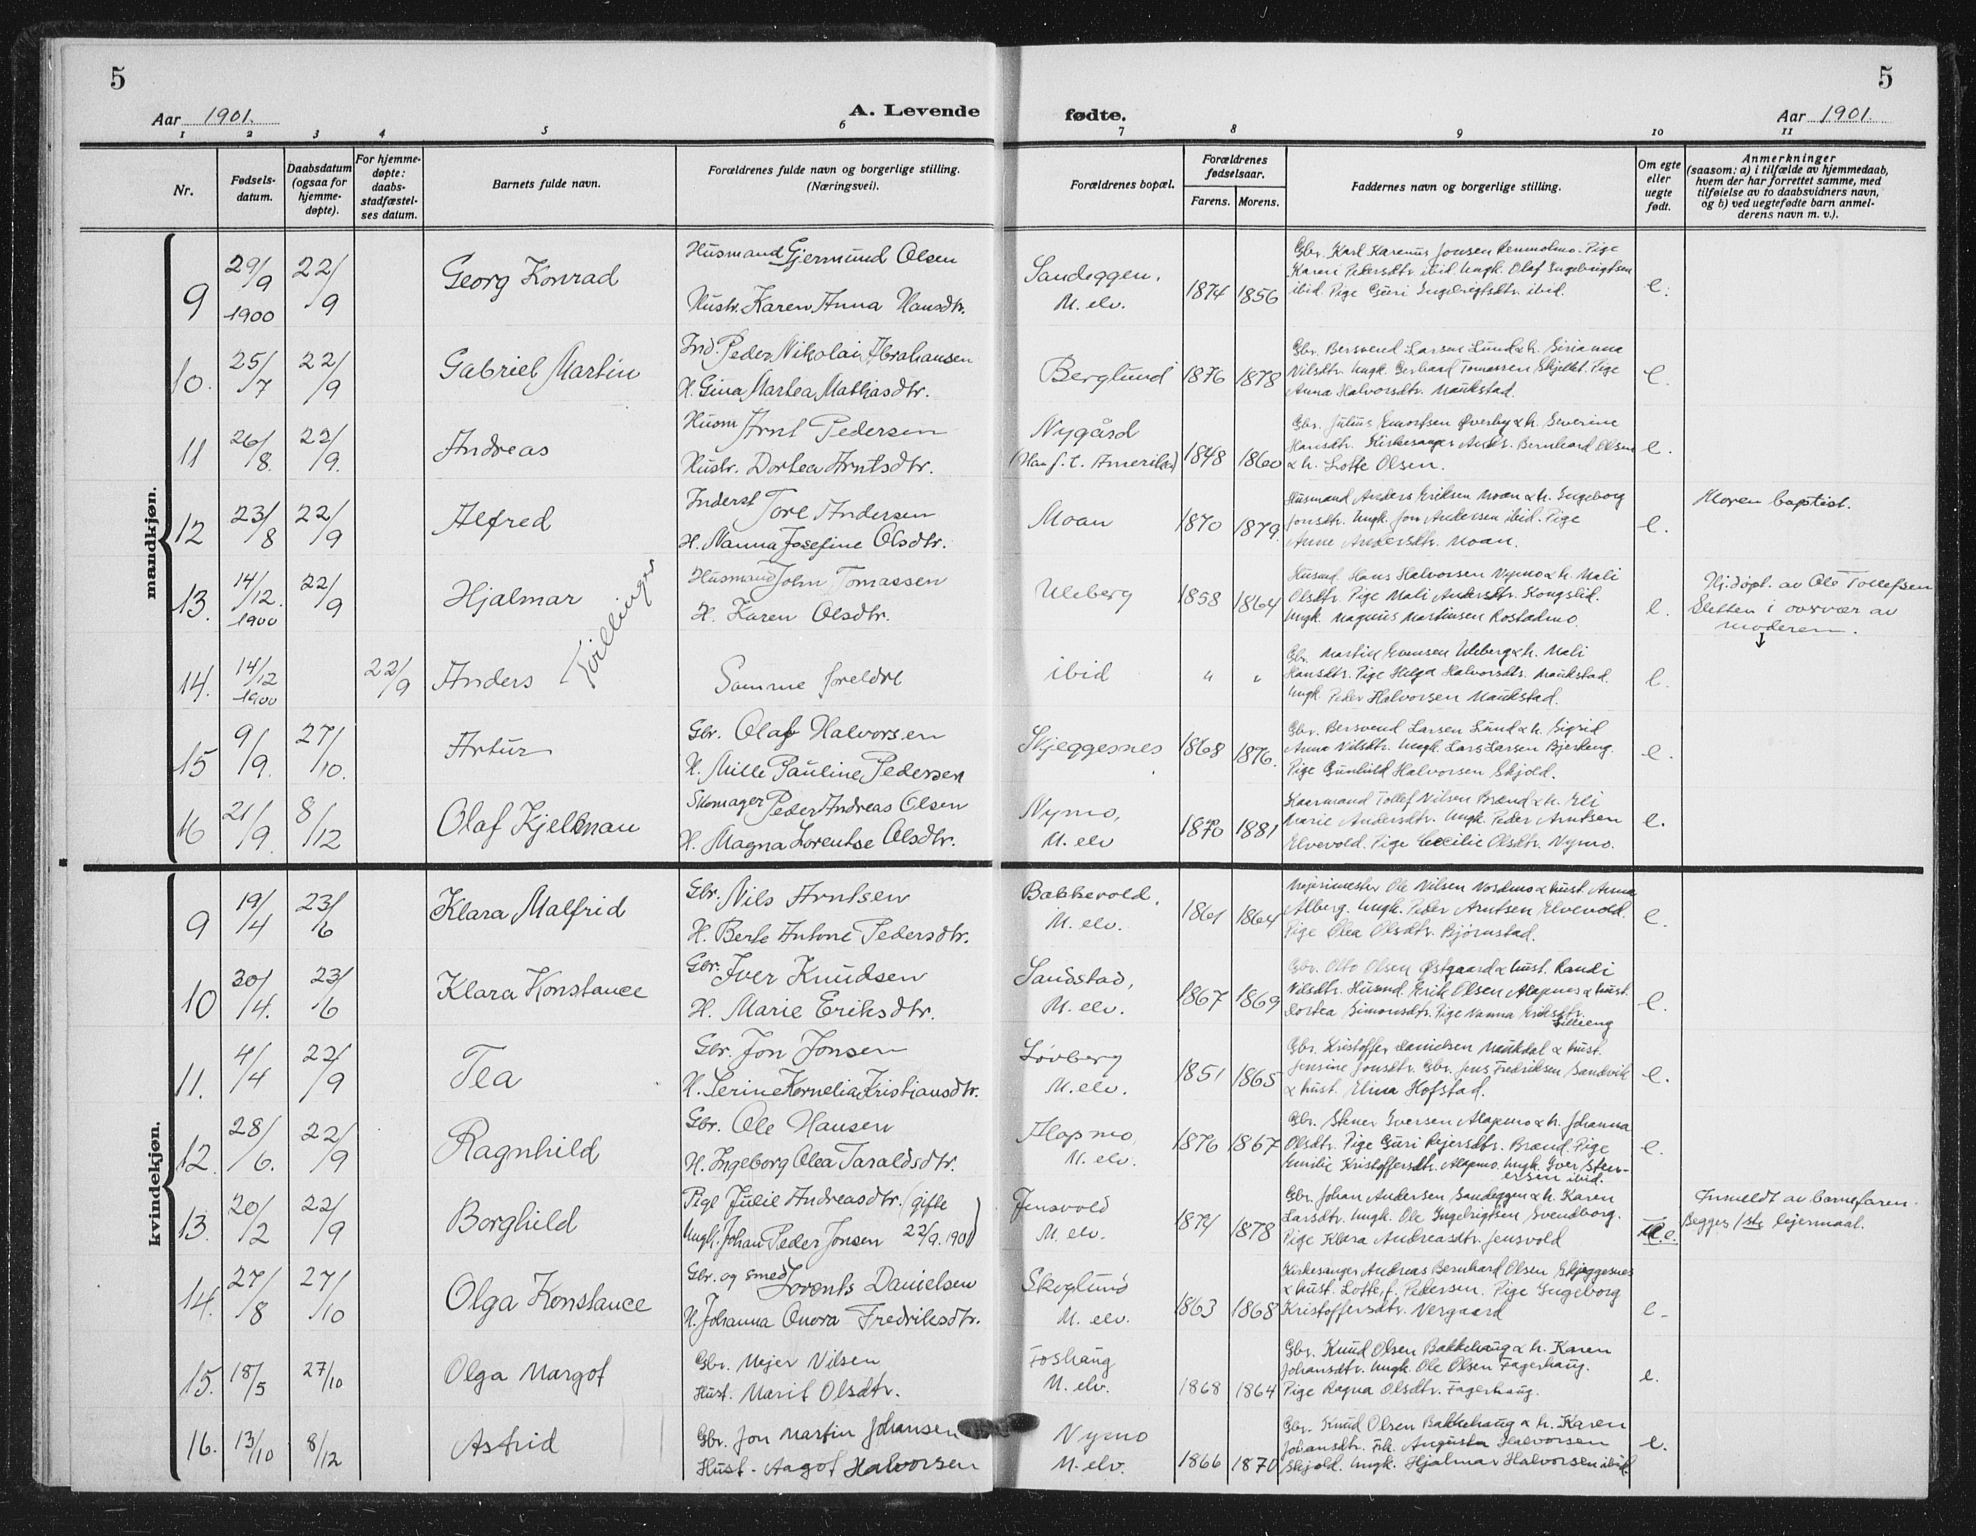 5
5
Aar 1901.
A. Levende
fødte.
Aar 1901.
1 2 3 4 5 6 7 8 9 10 11
Nr.
Fødsels-
datum.
Daabsdatum
(ogsaa for
hjemme-
døpte).
For hjemme-
døpte:
daabs-
stadfæstel-
ses datum.
Barnets fulde navn.
Forældrenes fulde navn og borgerlige stilling.
(Næringsvei).
Forældrenes bopæl.
Forældrenes
fødselsaar.
Farens. Morens.
Faddernes navn og borgerlige stilling.
Om egte
eller
uegte
født.
Anmerkninger
(saasom: a) i tilfælde av hjemmedaab,
hvem der har forrettet samme, med
tilføielse av to daabsvidners navn,
og b) ved uegtefødte barn anmel-
derens navn m. v.).
mandkjøn.
9 29/9 1900 22/9 Georg Konrad
Husmand Gjermund Olsen
Hustr. Karen Anna Hansdtr.
Sandeggen,
M. elv.
1874 1856
Gbr. Karl Karenus Jonsen Renmolmo. Pige
Karen Pedersdtr. ibid. Ungk. Olaf Ingebrigtsen
ibid. Pige Guri Ingebrigtsdtr. ibid.
e.
10. 25/7 22/9 Gabriel Martin
Ind. Peder Nikolai Abrahamsen
H. Gina Martea Mathiasdtr.
Berglund 1876 1878
Gbr. Bersvend Larsen Lund & h.
Nilsdtr. Ungk. Gerhard Tomassen Skjellet. Pige
Anna Halvorsdtr. Maukstad.
e.
11 26/8. 22/9. Andreas
Husm Arnt Pedersen
Hustr. Dortea Arntsdtr.
Nygård
(Han f. t. Amerika)
1848 1860
Gbr. Julius Enoksen Øverby & h. Severine
Hansdtr. Kirkesanger Andr. Bernhard Olsen
& h. Lotte Olsen.
e.
12 23/8 22/9 Alfred
Inderst Tore Andersen
H. Nanna Josefine Olsdtr.
Moan 1870 1879.
Husmand Anders Eriksen Moan & h. Ingeborg
Jonsdtr. Ungk. Jon Andersen ibid. Pige
Anne Andersdtr. Moan.
e.
Moren baptist.
13. 14/12. 1900 22/9 Hjalmar
Tvillinger
Husmand John Tomassen
H. Karen Olsdtr.
Uleberg 1858 1864
Husmd. Hans Halvorsen Nymo & h. Mali
Olsdtr. Pige Mali Andersdtr. Kongslid.
Ungk. Magnus Martinsen Rostadmo.
e.
Hj.døpt. av Ole Tollefsen
Sletten i overvær av
moderen.
14. 14/12 1900 22/9 Anders
Samme foreldre
ibid " "
Gbr. Martin Evensen Uleberg & h. Mali
Hansdtr. Pige Helga Halvorsdtr. Maukstad.
Ungk. Peder Halvorsen Maukstad.
e.
15 9/9. 27/10. Artur
Gbr. Olaf Halvorsen
H. Mille Pauline Pedersen
Skjeggesnes 1868 1876.
Gbr. Bersvend Larsen Lund & h. Sigrid
Anna Nilsdtr. Ungk. Lars Larsen Bjerkeng.
Pige Gunhild Halvorsen Skjold.
e.
16 21/9. 8/12 Olaf Kjellman
Skomager Peder Andreas Olsen
H. Magna Lorentse Olsdtr.
Nymo,
M. elv
1870 1881
Kaarmand Tollef Nilsen Brænd & h. Eli
Marie Andersdtr. Ungk. Peder Arntsen
Elvevold. Pige Cecilie Olsdtr. Nymo.
e.
kvindekjøn.
9 19/4 23/6 Klara Malfrid
Gbr. Nils Arntsen
H. Berte Antone Pedersdtr.
Bakkevold,
M. elv.
1861 1864
Meierimester Ole Nilsen Nordmo & hust. Anna
Alberg. Ungk. Peder Arntsen Elvevold.
Pige Olea Olsdtr. Bjørnstad.
e.
10 30/4. 23/6 Klara Konstance
Gbr. Iver Knudsen
H. Marie Eriksdtr.
Sandstad,
M. elv.
1867 1869
Gbr. Otto Olsen Østgaard & hust. Randi
Nilsdtr. Husmd. Erik Olsen Alapmo & hust.
Dortea Simonsdtr. Pige Nanna Eriksdtr.
e.
11. 4/4 22/9 Tea
Gbr. Jon Jonsen
H. Serine Kornelia Kristiansdtr.
Løvberg
M. elv.
1851 1865
Gbr. Kristoffer Danielsen Maukdal & hust.
Jensine Jonsdtr. Gbr. Jens Fredriksen Sandvik
& hust. Elina Hofstad.
e.
12. 28/6. 22/9 Ragnhild
Gbr. Ole Hansen
H. Ingeborg Olea Taraldsdtr.
Alapmo,
M. elv.
1876 1867
Gbr. Stener Iversen Alapmo & h. Johanna
Olsdtr. Pige Guri Reiersdtr. Brænd. Pige
Emilie Kristoffersdtr. Alapmo. Ungk. Iver Sten-
ersen ibid.
e.
13. 20/2 22/9 Borghild
Pige Julie Andreasdtr. (gifte
Ungk. Johan Peder Jonsen 22/9. 1901)
Jensvold
M. elv.
1874 1878
Gbr. Johan Andersen Sandeggen & h. Karen
Larsdtr. Ungk. Ole Ingebrigtsen Svendborg.
Pige Klara Andreasdtr. Jensvold
u.e.
Anmeldt av barnefaren.
Begges 1ste leiermaal.
14. 27/8 27/10 Olga Konstance
Gbr. og smed Lorents Danielsen
H. Johanna Onora Fredriksdtr.
Skoglund
M. elv.
1863 1868
Kirkesanger Andreas Bernhard Olsen Skjeggesnes
& hust. Lotte, f. Pedersen. Pige Ingeborg
Kristoffersdtr. Vergaard
e.
15. 18/5 27/10 Olga Margot
Gbr. Meyer Nilsen
Hust. Marit Olsdtr.
Foshaug
M. elv.
1868 1864
Gbr. Knud Olsen Bakkehaug & h. Karen
Johansdtr. Ungk. Ole Olsen Fagerhaug.
Pige Ragna Olsdtr. Fagerhaug.
e.
16. 13/10 8/12 Astrid
Gbr. Jon Martin Johansen
Hust. Aagot Halvorsen
Nymo
M. elv.
1866 1870
Gbr. Knud Olsen Bakkehaug & h. Karen
Johansdtr. Frk. Augusta Halvorsen
Skjold. Ungk. Hjalmar Halvorsen ibid.
e.